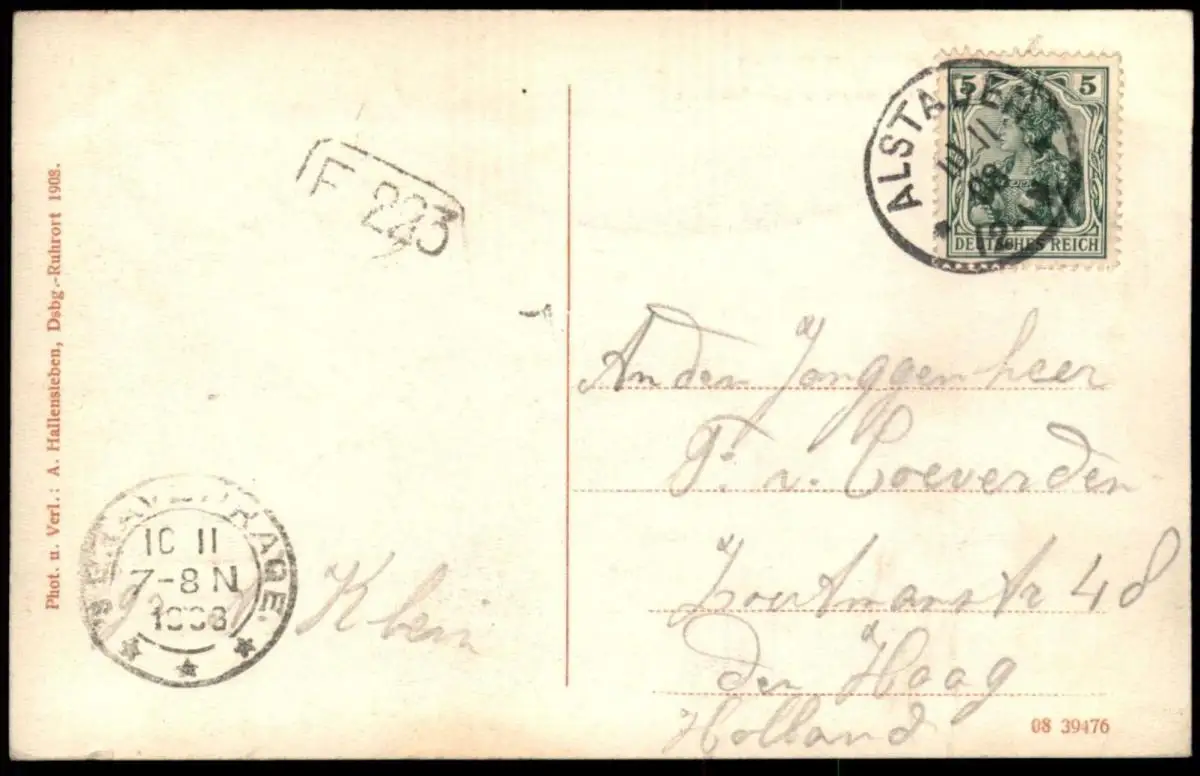 Phot. u. Verl.: A. Hallensleben, Dsbg.-Ruhrort 1908.
F 223
5 5
DEUTSCHES REICH
ALSTADEN
10.11.
08
12-1
An den Jonggenheer
F. v. Coeverden
Zoutmanstr 48
den Haag
Holland
'S GRAVENHAGE.
10 11
7-8 N
1908
Klein
08 39476